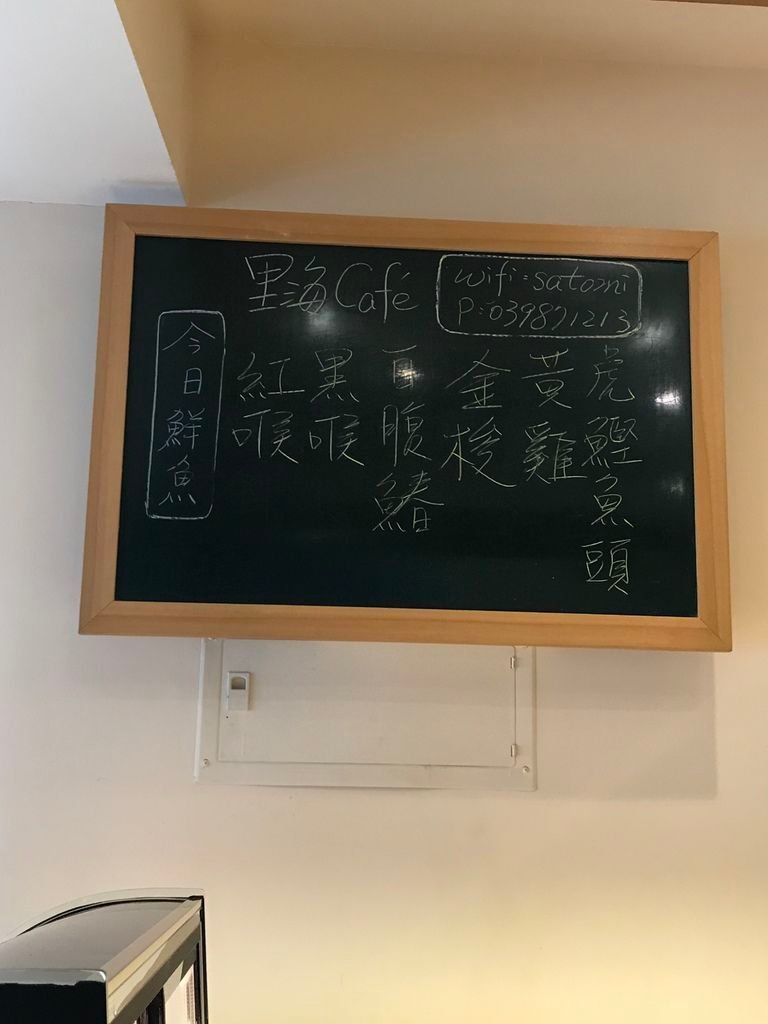 里海Café
wifi:satomi
P:039871213
今日鮮魚
紅喉
黑喉
白腹鰆
金梭
黃雞
虎鰹魚頭